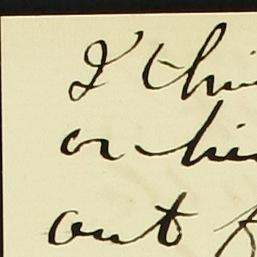 I thi
or hi
out f